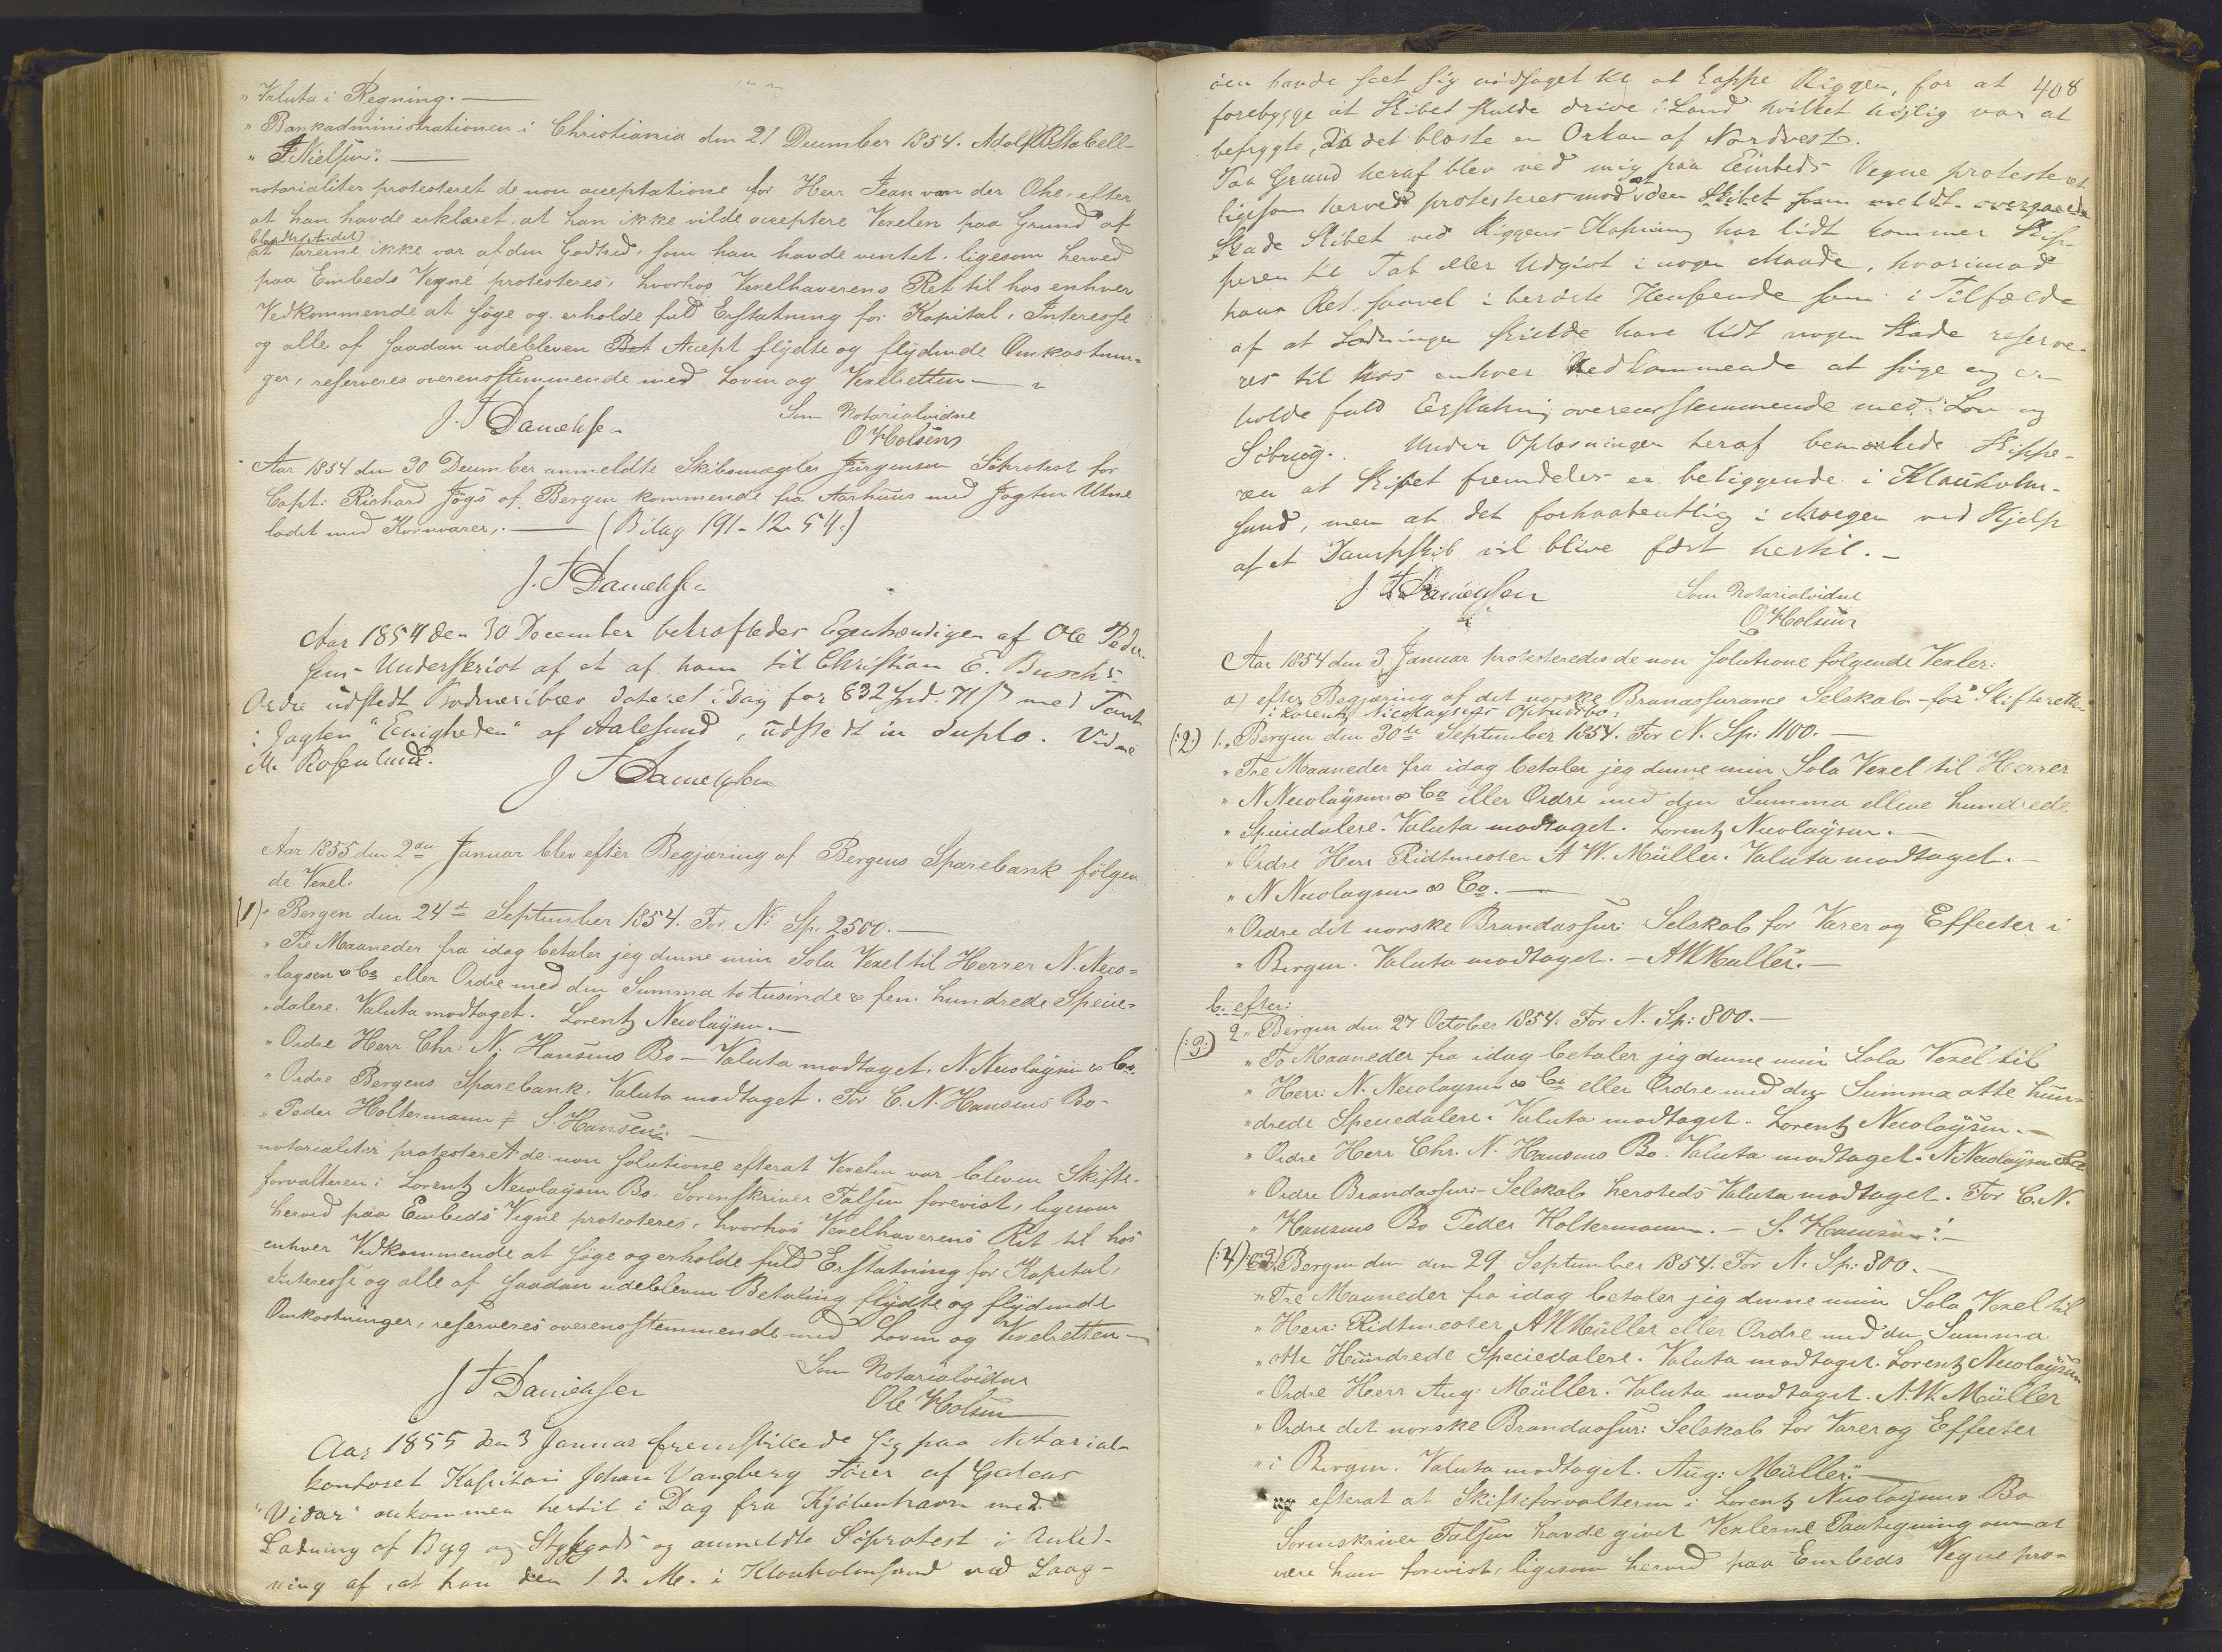 "Valuta i Regning. —
"Bankadministrationen i Christiania den 21 December 1854. Adolf
"F Nielsen". —
notarialiter protesteret de non acceptatione for Herr Jean von der Ohe, efter
at han havde erklæret at han ikke vilde acceptere Vexelen paa Grund af
at Varerne ikke var af den Godhed, som han havde ventet, ligesom herved
paa Embeds Vegne protesteres, hvorhos Vexelhaverens Ret til hos enhver
Vedkommende at søge og erholde fuld Erstatning for Kapital, Interesse
og alle af saadan udebleven Accept flydte og flydende Omkostnin=
ger, reserveres overensstemmende med Loven og Vexelretten —
J. F Danielsen
Som Notarialvidne
O Holsen
Aar 1854 den 30 December anmeldte Skibsmægler Jürgensen Søprotest for
Capt: Richard Jögs af Bergen kommende fra Aarhuus med Jagten Utne
ladet med Kornvarer, — (Bilag 191-12-54.)
J. F Danielsen
Aar 1854 den 30 December bekræftedes Egenhændigen af Ole Peder-
sens Underskrivt af et af ham til Christian E. Busch's
Ordre udstedt Bodmeribrev dateret i Dag for 832 Spd. 71 ß med Pant
i Jagten "Enigheden" af Aalesund, udstedt in duplo. Vidne
M. Rosenlund.
J F Danielsen
Aar 1855 den 2den Januar blev efter Begjæring af Bergens Sparebank følgen
de Vexel:
(1) "Bergen den 24de September 1854. For N: Sp. 2500. —
"Tre Maaneder fra idag betaler jeg denne min Sola Vexel til Herrer N. Nico=
"laysen & Co eller Ordre med den Summa to tusinde & fem hundrede Specie=
"dalere. Valuta modtaget. Lorentz Nicolaysen. —
"Ordre Herr Chr: N. Hansens Bo — Valuta modtaget. N. Nicolaysen & Co.
"Ordre Bergens Sparebank. Valuta modtaget. For C. N. Hansens Bo-
"Peder Holtermann S. Hansen". —
notarialiter protesteret de non solutione efterat Vexelen var bleven Skifte-
forvalteren i Lorentz Nicolaysens Bo, Sorenskriver Falsen forevist, ligesom
herved paa Embeds Vegne protesteres, hvorhos Vexelhaverens Ret til hos
enhver Vedkommende at søge og erholde fuld Erstatning for Kapital,
Interesse og alle af saadan udebleven Betaling flydte og flydende
Omkostninger, reserveres overensstemmende med Loven og Vexelretten —
J F Danielsen
Som Notarialvidne
Ole Holsen
Aar 1855 den 3 Januar fremstillede sig paa Notarial-
kontoret Kapitain Johan Vangberg Fører af Galeas
"Vidar" ankommen hertil i Dag fra Kjøbenhavn med
Ladning af Byg og Stykgods og anmeldte Søprotest i Anled-
ning af, at han den 1 d. M. i Klauholmsund ved Laag-
408
øen havde seet sig nødsaget til at kappe Riggen, for at
forebygge at Skibet skulde drive i Land hvilket høilig var at
befrygte, da det blæste en Orkan af Nordvest.
Paa Grund heraf blev ved mig paa Embeds Vegne protesteret
ligesom herved protesteres mod at den Skibet som meldt overgaaede
Skade Skibet ved Riggens Kapning har lidt kommer Skip-
peren til Tab eller Udgivt i nogen Maade, hvorimod
hans Ret saavel i berørte Henseende som i Tilfælde
af at Ladningen skulde have lidt nogen Skade reserve-
res til hos enhver Vedkommende at søge og er-
holde fuld Erstatning overensstemmende med Lov og
Søbrug. Under Oplæsningen heraf bemærkede Skippe-
ren at Skibet fremdeles er beliggende i Klauholm-
sund, men at det forhaabentlig i Morgen ved Hjelp
af et Dampskib vil blive ført hertil. —
J F Danielsen
Som Notarialvidne
O Holsen
Aar 1854 den 3 Januar protesteredes de non solutione følgende Vexler:
a) efter Begjæring af det norske Brandassurance Selskab - for Skifteretten
i Lorentz Nicolaysens Opbudsbo:
(:2) 1. "Bergen den 30te September 1854. For N. Sp: 1100. —
"Tre Maaneder fra idag betaler jeg denne min Sola Vexel til Herrer
"N Nicolaysen & Co eller Ordre med den Summa elleve hundrede
"Speciedalere. Valuta modtaget. Lorentz Nicolaysen. —
"Ordre Herr Ridtmester A W. Müller. Valuta modtaget. —
"N Nicolaysen & Co. —
"Ordre det norske Brandassur: Selskab for Varer og Effecter i
"Bergen. Valuta modtaget. — A W Müller. —
b. efter:
(:3:) 2. "Bergen den 27 October 1854: For N. Sp: 800. —
"To Maaneder fra idag betaler jeg denne min Sola Vexel til
"Herr: N. Nicolaysen & Co eller Ordre med den Summa otte hun=
"drede Speciedalere. Valuta modtaget. Lorentz Nicolaysen. —
"Ordre Herr Chr. N. Hansens Bo. Valuta modtaget. N Nicolaysen & Co
"Ordre Brandassur:- Selskab hersteds Valuta modtaget. For C. N.
"Hansens Bo Peder Holtermann. — S. Hansen". —
(:4) 3) Bergen den den 29 September 1854. For N. Sp: 800. —
"Tre Maaneder fra idag betaler jeg denne min Sola Vexel til
"Herr: Ridtmester A W Müller eller Ordre med den Summa
"otte Hundrede Speciedalere. Valuta modtaget. Lorentz Nicolaysen
"Ordre Herr Aug: Müller. Valuta modtaget. A. W. Müller
"Ordre det norske Brandassur: Selskab for Varer og Effecter
"i Bergen. Valuta modtaget. Aug: Müller". —
efterat at Skifteforvalteren i Lorentz Nicolaysens Bo
Sorenskriver Falsen havde givet Vexlerne Paategning om at
være ham forevist, ligesom herved paa Embeds Vegne pro-